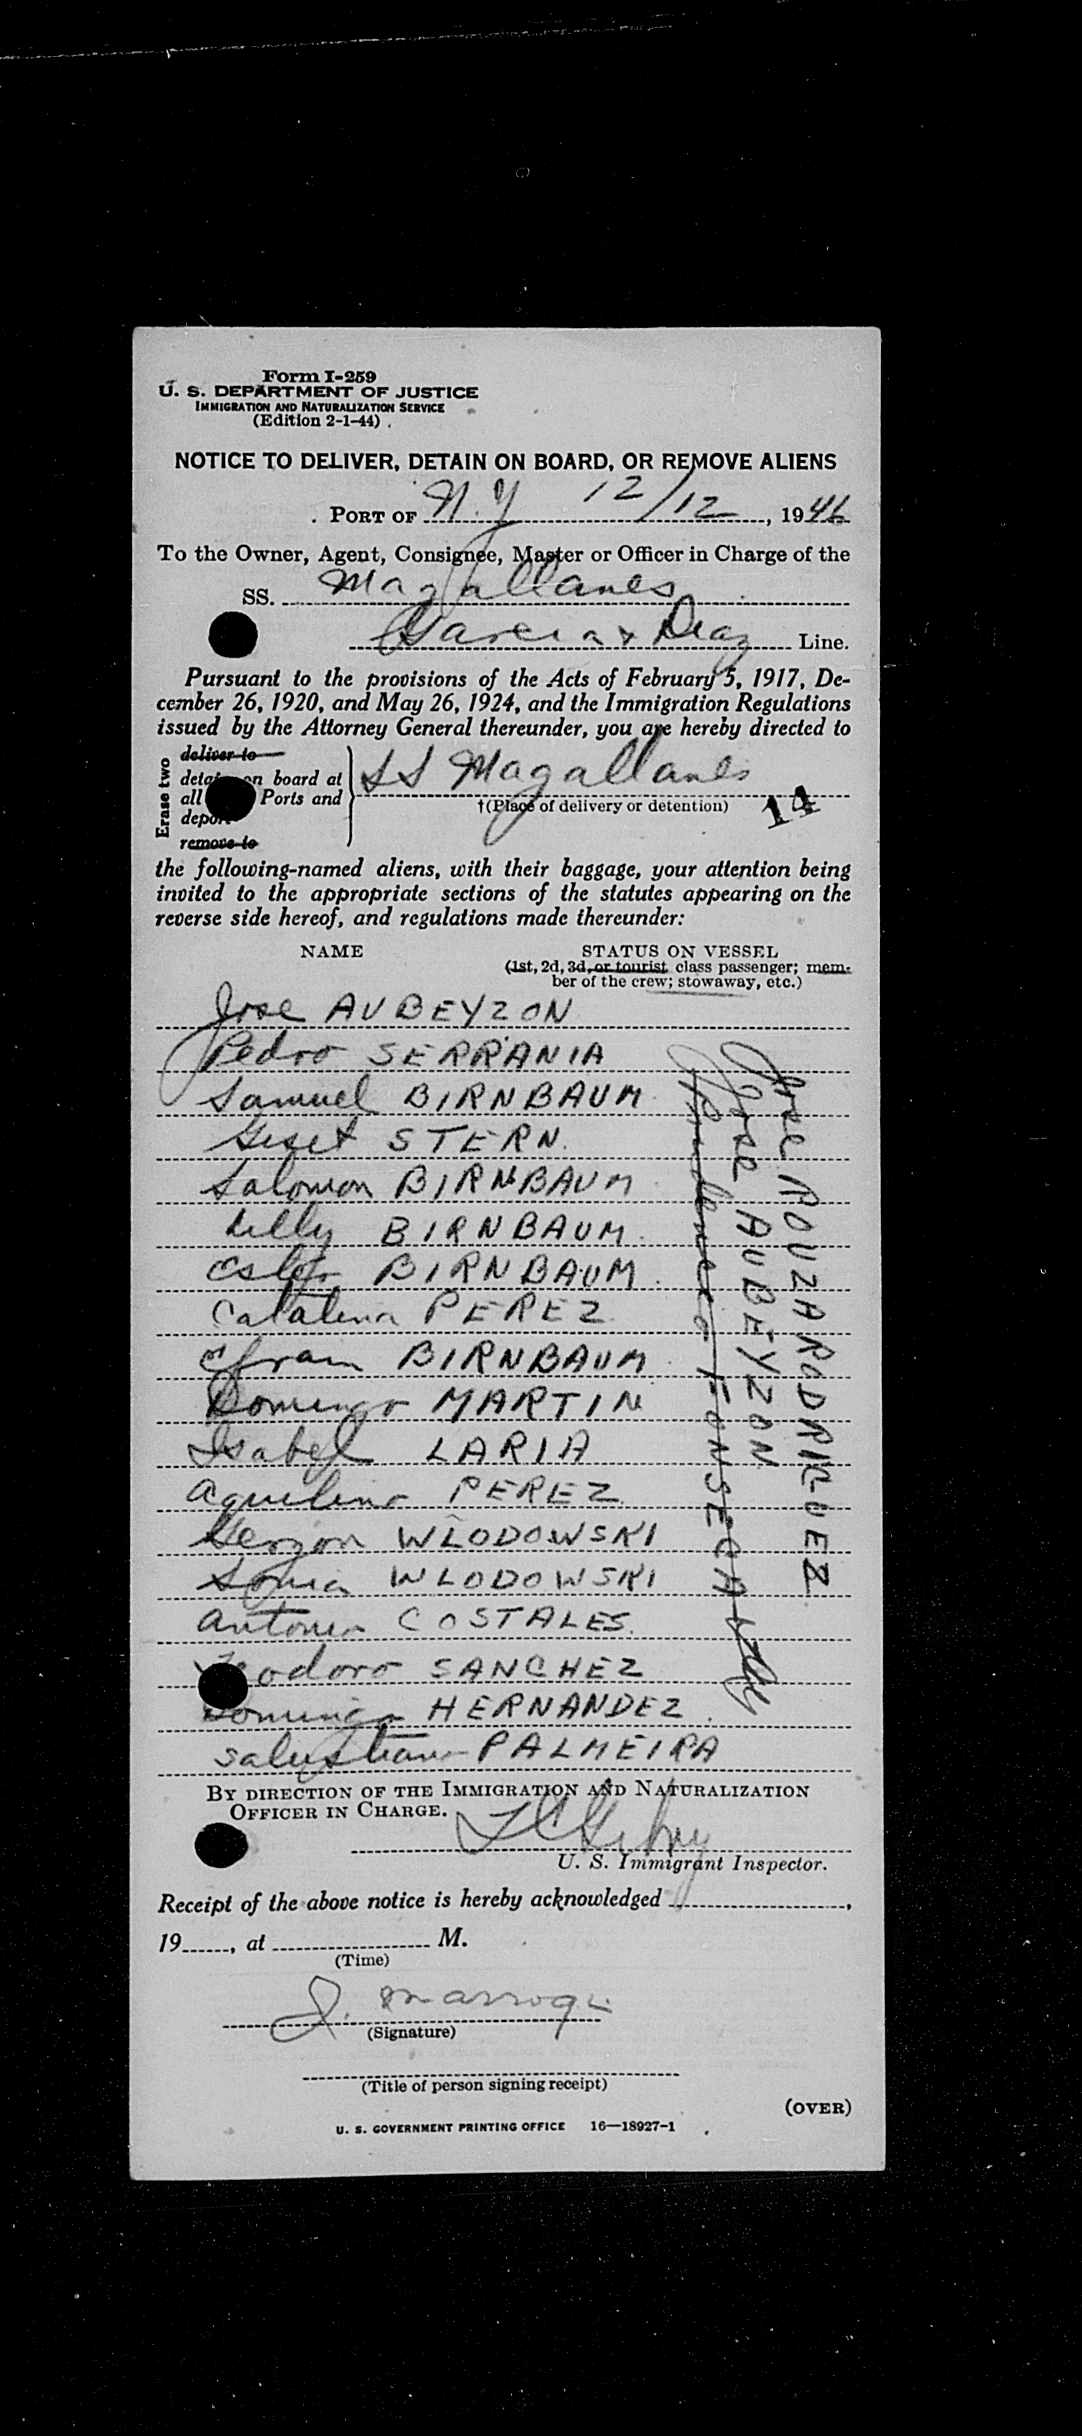 Form I-259
U. S. DEPARTMENT OF JUSTICE
IMMIGRATION AND NATURALIZATION SERVICE
(Edition 2-1-44)
NOTICE TO DELIVER, DETAIN ON BOARD, OR REMOVE ALIENS
PORT OF N.Y 12/12, 1946
To the Owner, Agent, Consignee, Master or Officer in Charge of the
SS. Magallanes
Garcia & Diaz Line.
Pursuant to the provisions of the Acts of February 5, 1917, De-
cember 26, 1920, and May 26, 1924, and the Immigration Regulations
issued by the Attorney General thereunder, you are hereby directed to
Erase two
deliver to
detain on board at
all Ports and
deport
remove to
SS Magallanes
†(Place of delivery or detention)
14
the following-named aliens, with their baggage, your attention being
invited to the appropriate sections of the statutes appearing on the
reverse side hereof, and regulations made thereunder:
NAME STATUS ON VESSEL
(1st, 2d, 3d, or tourist class passenger; mem-
ber of the crew; stowaway, etc.)
Jose AUBEYZON
Pedro SERRANIA
Samuel BIRNBAUM
STERN
Salomon BIRNBAUM
Lilly BIRNBAUM
Ester BIRNBAUM
Catalina PEREZ
Efrain BIRNBAUM
Domingo MARTIN
Isabel LARIA
Aquilino PEREZ
Gerzon WLODOWSKI
Sonia WLODOWSKI
Antonio COSTALES
Teodoro SANCHEZ
Domingo HERNANDEZ
Salustiano PALMEIRA
Jose ROUZA RODRIGUEZ
Jose AUBEYZON
FONSECA
BY DIRECTION OF THE IMMIGRATION AND NATURALIZATION
OFFICER IN CHARGE.
U. S. Immigrant Inspector.
Receipt of the above notice is hereby acknowledged
19, at M.
(Time)
J.
(Signature)
(Title of person signing receipt)
(OVER)
U. S. GOVERNMENT PRINTING OFFICE 16—18927-1